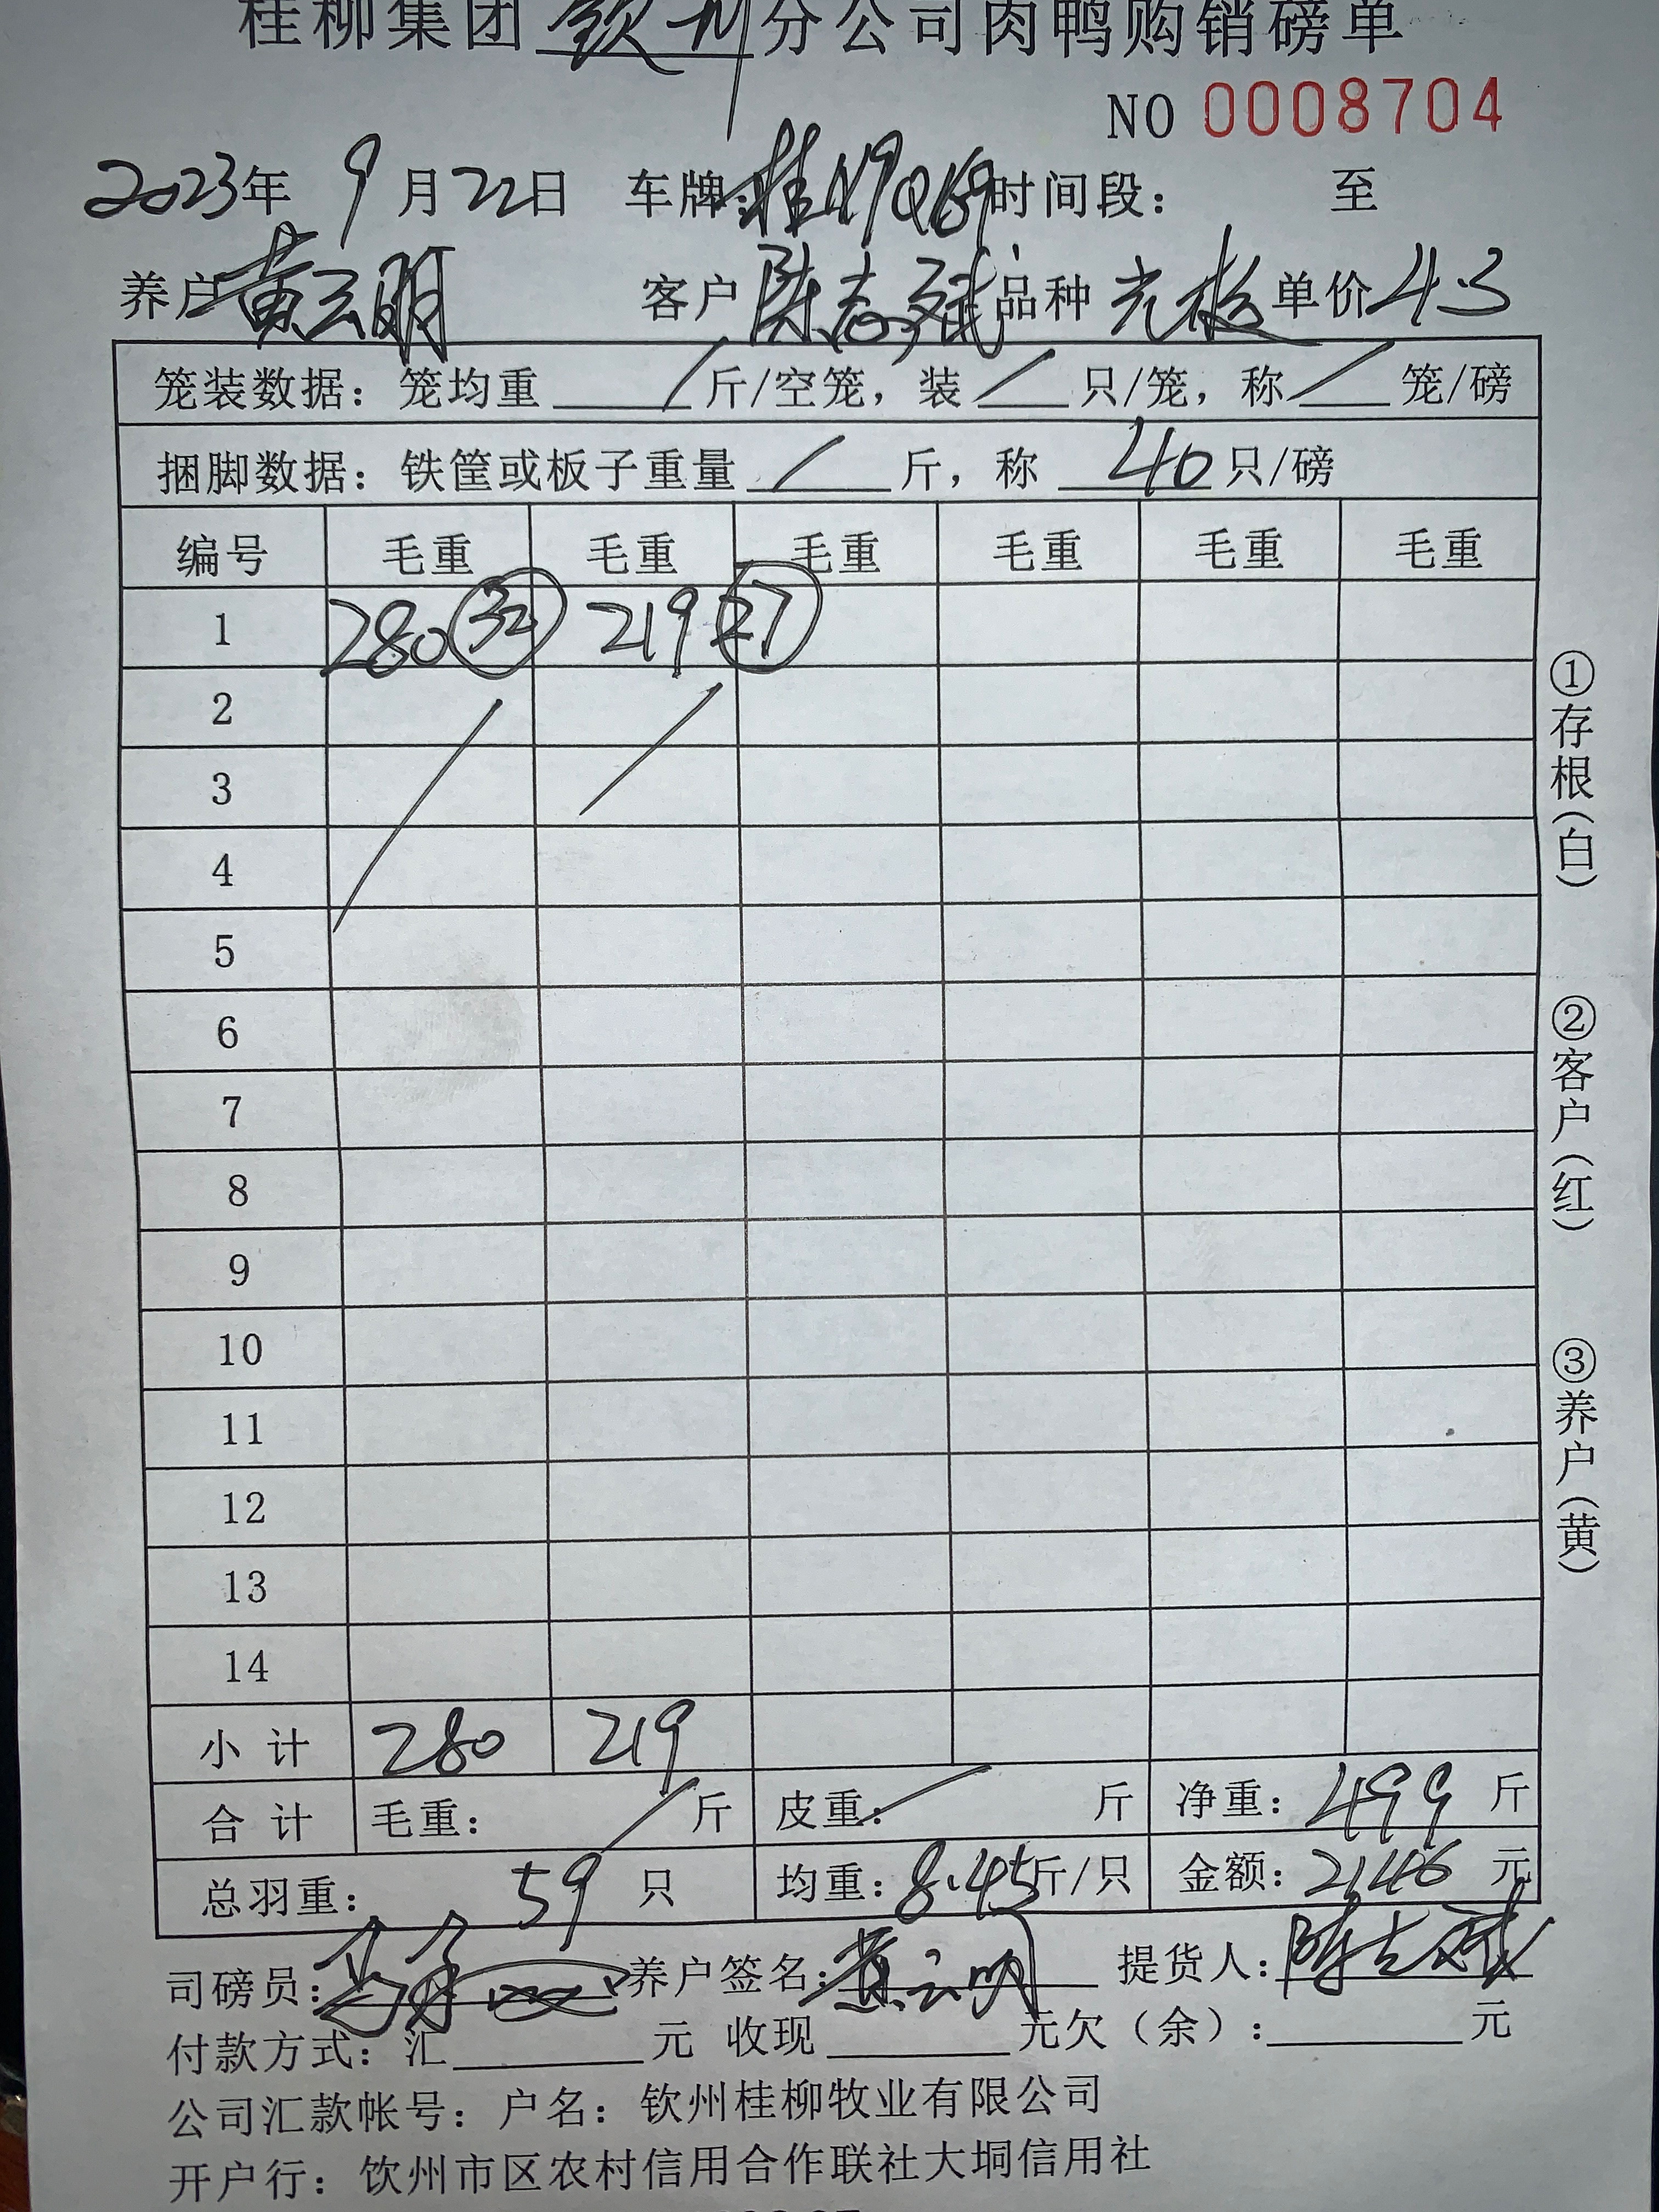 桂柳集团钦州分公司肉鸭购销磅单
NO 0008704
2023年 9月22日 车牌:桂 时间段: 至
养户 黄云明 客户 陈志斌 品种 单价 4.3
笼装数据: 笼均重 / 斤/空笼, 装 / 只/笼, 称 / 笼/磅
捆脚数据: 铁筐或板子重量 / 斤, 称 40 只/磅
编号 毛重 毛重 毛重 毛重 毛重 毛重
1 280 32 219 27
2
3
4
5
6
7
8
9
10
11
12
13
14
小计 280 219
合计 毛重: / 斤 皮重: / 斤 净重: 499 斤
总羽重: 59 只 均重: 8.45斤/只 金额: 2146 元
司磅员: 养户签名: 黄云明 提货人: 陈志斌
付款方式: 汇 元 收现 元欠(余): 元
公司汇款帐号: 户名: 钦州桂柳牧业有限公司
开户行: 钦州市区农村信用合作联社大垌信用社
①存根(白)
②客户(红)
③养户(黄)